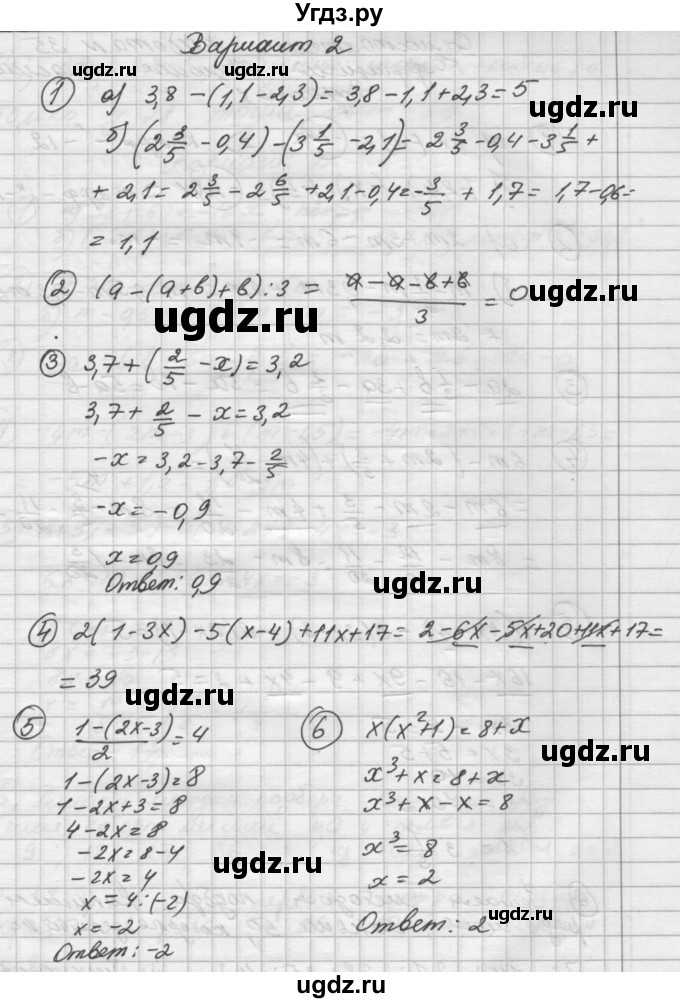 Угдз.ру
Вариант 2
ugdz.ru ugdz.ru
① а) 3,8 - (1,1 - 2,3) = 3,8 - 1,1 + 2,3 = 5
б) (2 3/5 - 0,4) - (3 1/5 - 2,1) = 2 3/5 - 0,4 - 3 1/5 +
+ 2,1 = 2 3/5 - 2 6/5 + 2,1 - 0,4 = - 3/5 + 1,7 = 1,7 - 0,6 =
= 1,1
ugdz.ru ugdz.ru
② (а - (а + в) + в) : 3 = (а - а - в + в)/3 = 0
ugdz.ru
③ 3,7 + (2/5 - x) = 3,2
ugdz.ru
3,7 + 2/5 - x = 3,2
-x = 3,2 - 3,7 - 2/5
ugdz.ru
-x = -0,9
ugdz.ru
x = 0,9
Ответ: 0,9
ugdz.ru
④ 2(1 - 3x) - 5(x - 4) + 11x + 17 = 2 - 6x - 5x + 20 + 11x + 17 =
= 39
ugdz.ru
⑤ (1 - (2x - 3))/2 = 4
1 - (2x - 3) = 8
1 - 2x + 3 = 8
4 - 2x = 8
-2x = 8 - 4
-2x = 4
x = 4 : (-2)
x = -2
Ответ: -2
⑥ x(x² + 1) = 8 + x
ugdz.ru
x³ + x = 8 + x
x³ + x - x = 8
x³ = 8
x = 2
Ответ: 2
ugdz.ru ugdz.ru
ugdz.ru ugdz.ru